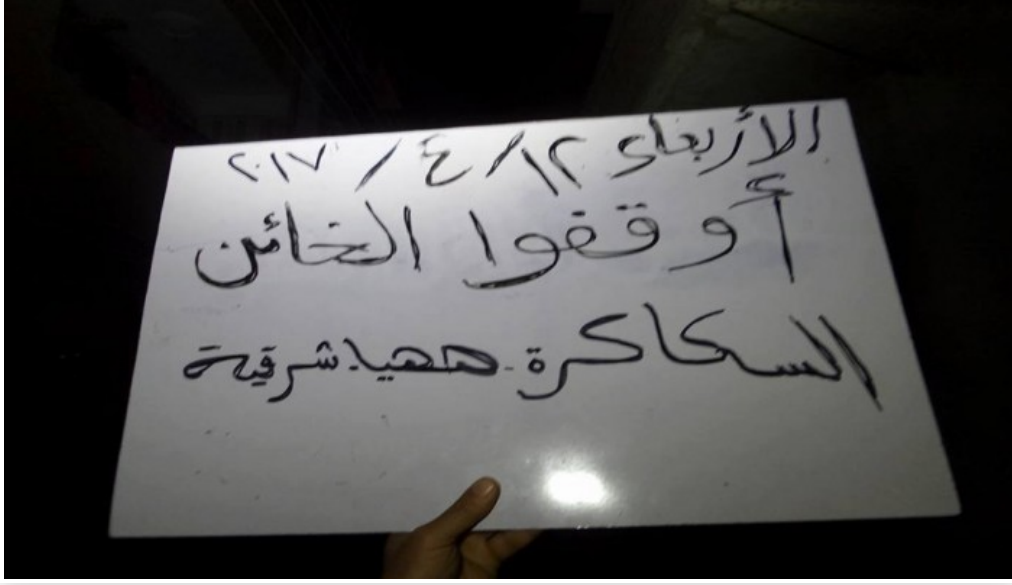 الأربعاء ١٢/٤/٢٠١٧
أوقفوا الخائن
السكاكرة - ههيا شرقية